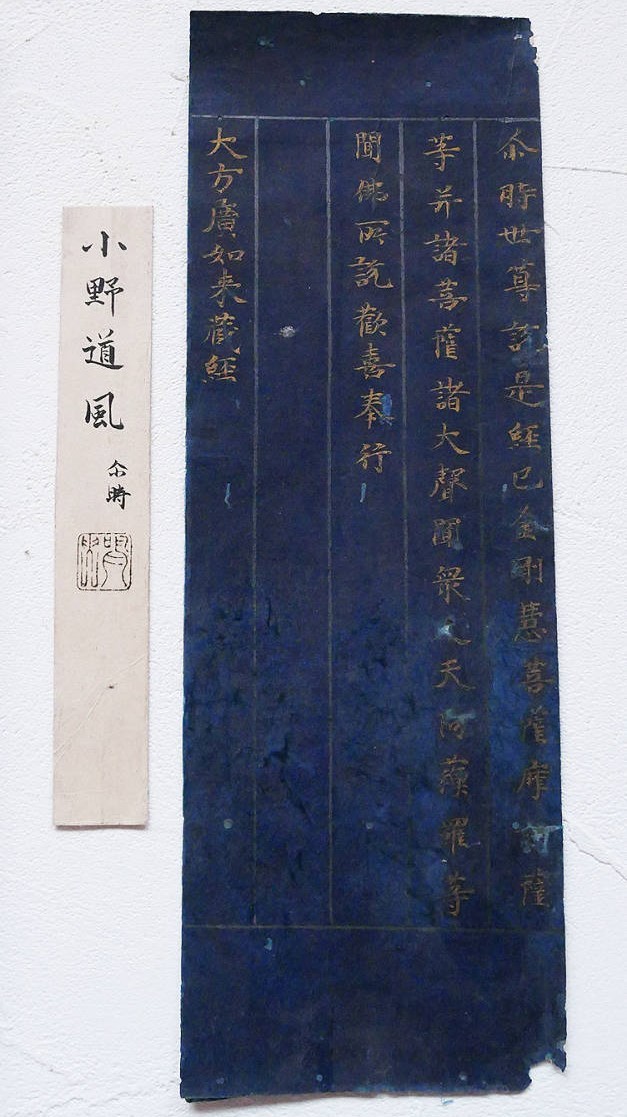 尒時世尊説是經已金剛慧菩薩摩訶薩
等并諸菩薩諸大聲聞衆人天阿蘇羅等
聞佛所説歡喜奉行
大方廣如来藏經
小野道風
尒時